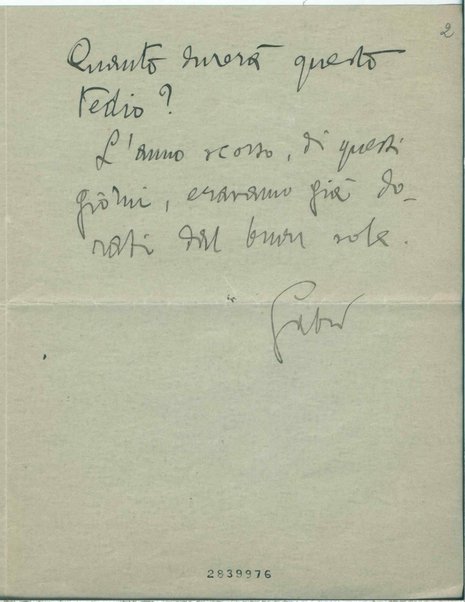 2
Quanto durerà questo
tedio?
L'anno scorso, di questi
giorni, eravamo già do-
rati dal buon sole.
Gabri
2839976